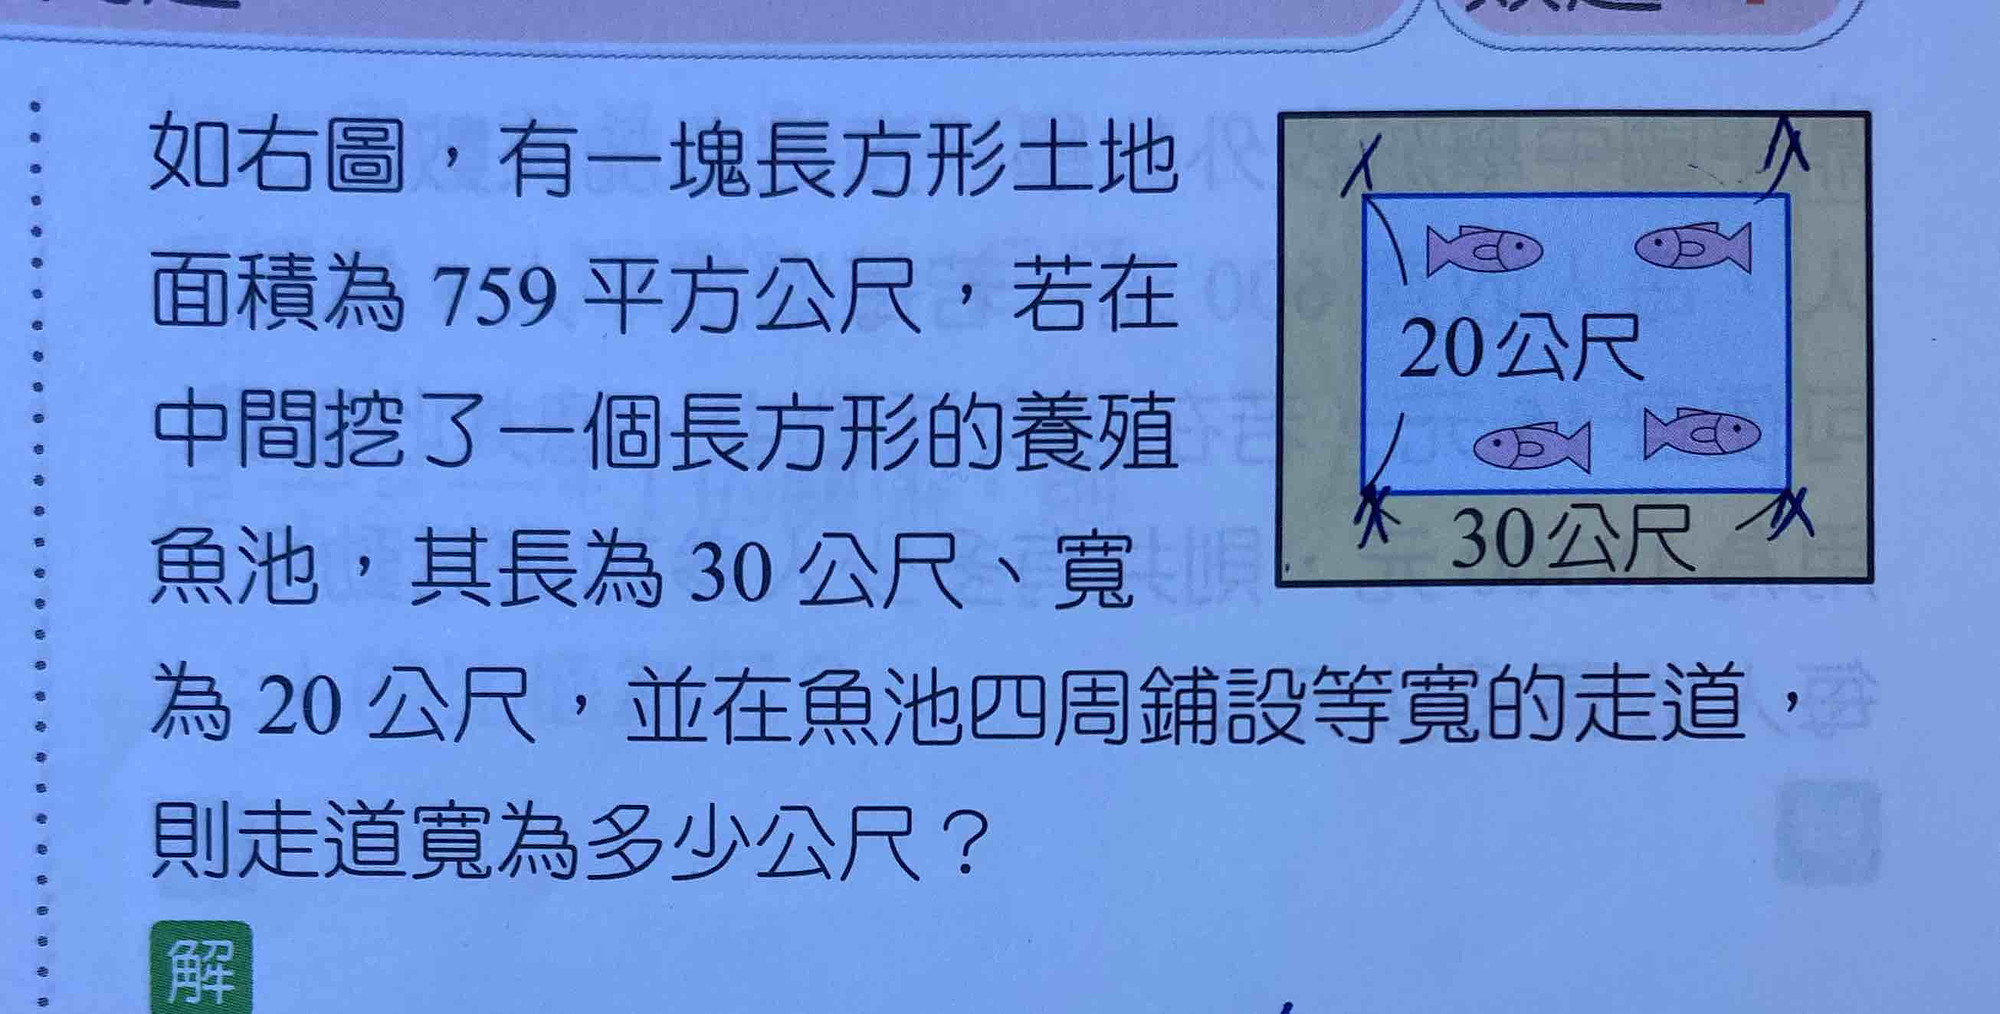 如右圖，有一塊長方形土地
面積為 759 平方公尺，若在
中間挖了一個長方形的養殖
魚池，其長為 30 公尺、寬
為 20 公尺，並在魚池四周鋪設等寬的走道，
則走道寬為多少公尺？
20公尺
30公尺
解